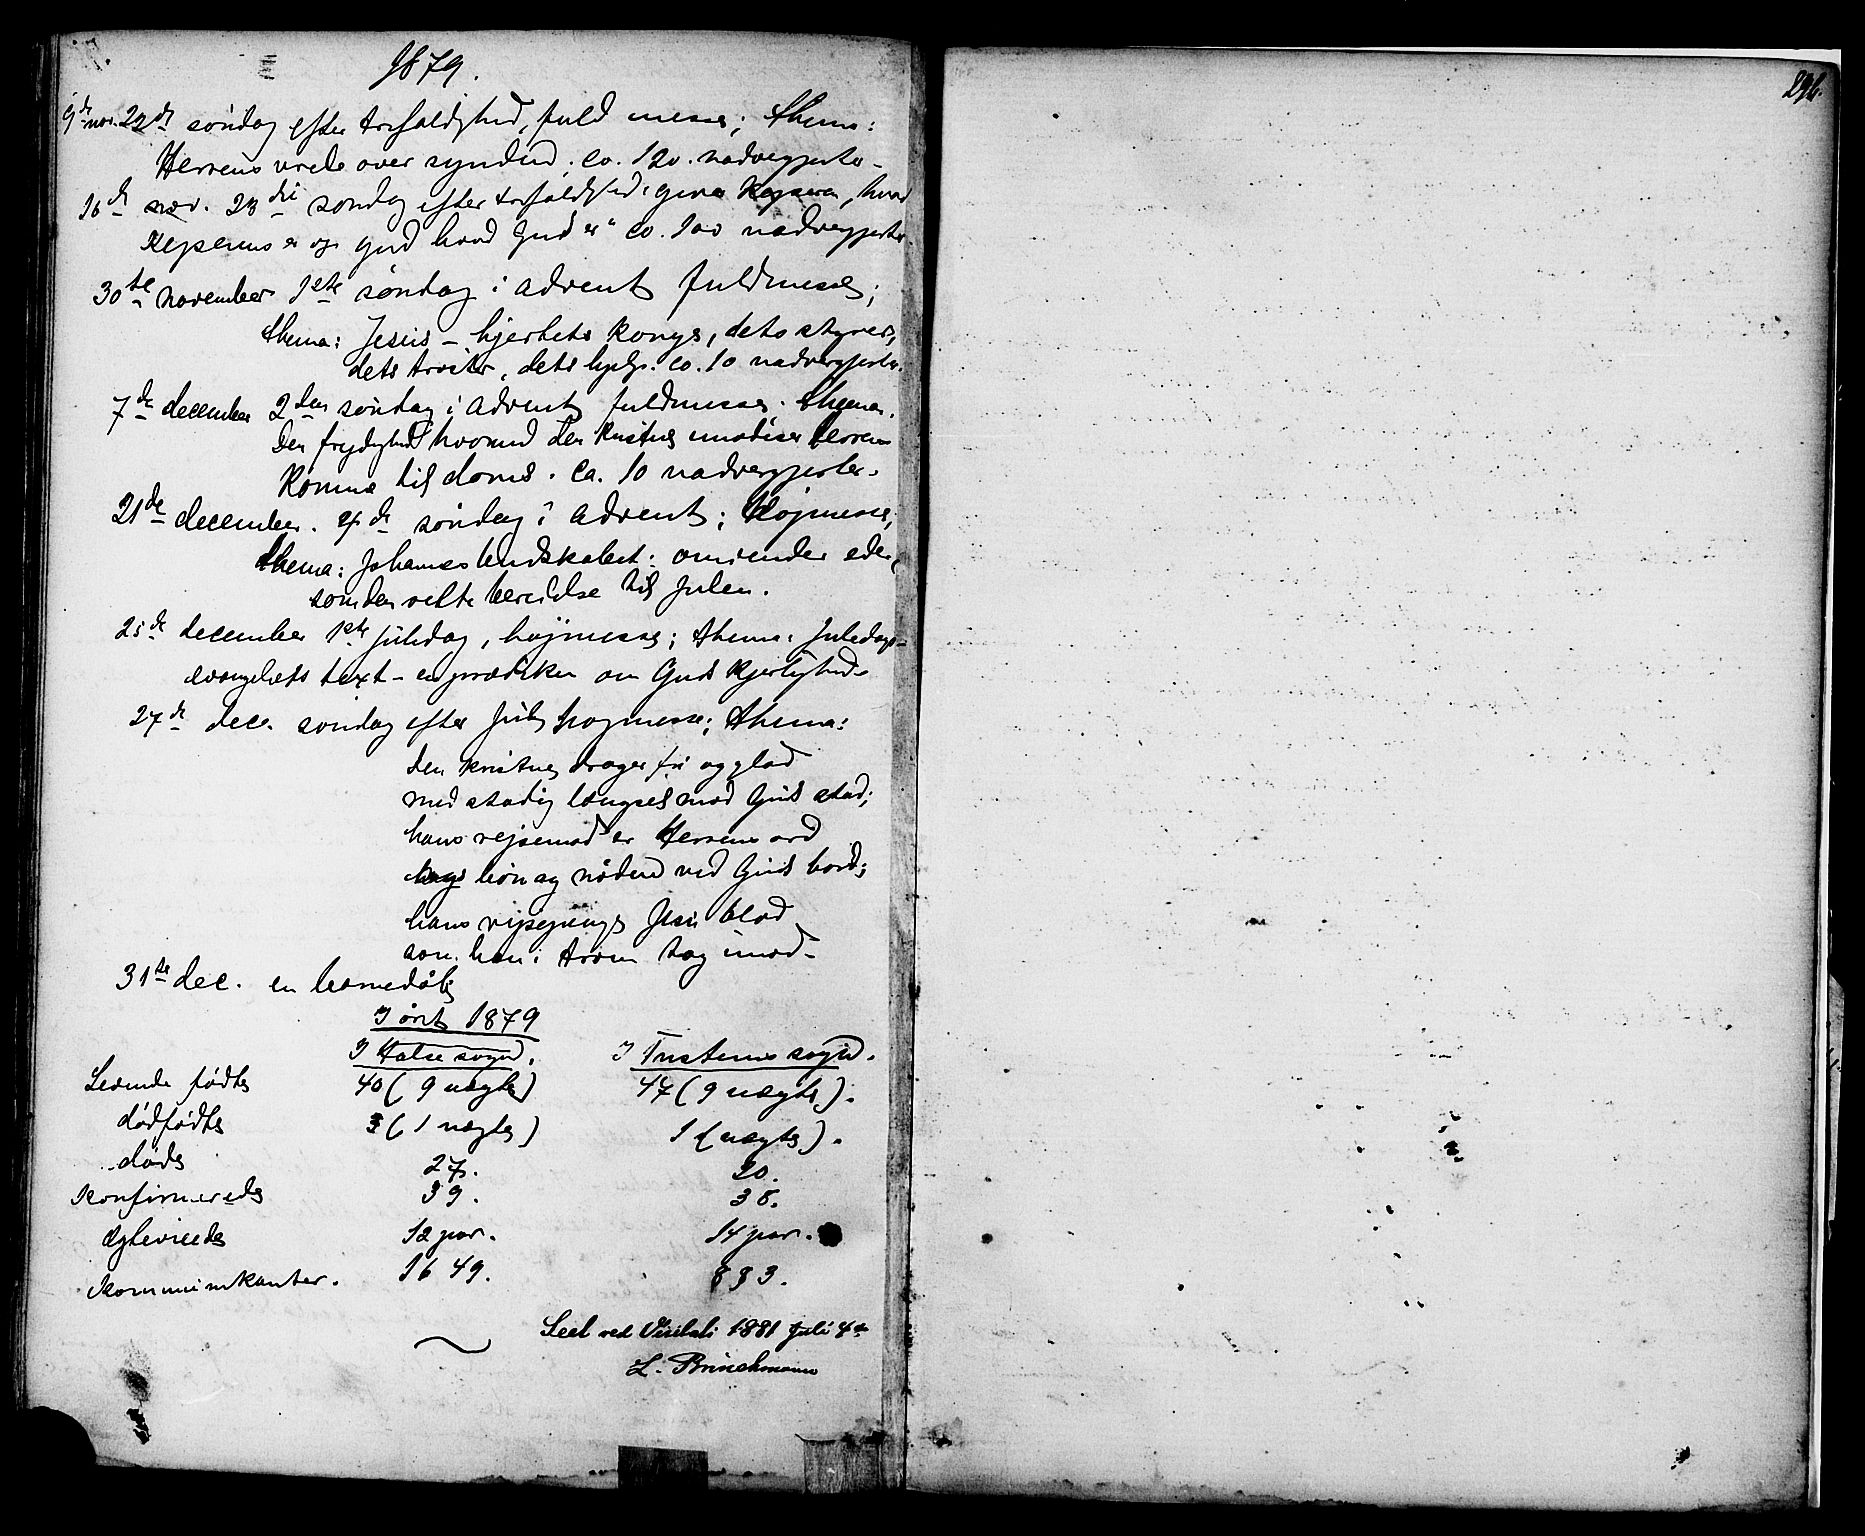 1879.
296.
9de nov. 22de søndag efter trefoldighed, fuld messe; thema:
Herrens vrede over synden. co. 120. nadvergjester-
16de nov. 23die søndag efter trefoldighed, giver Kejseren, hvad
Kejserens er og gud hvad Gud's er" co. 100 nadvergjester.
30te november 1ste søndag i advent fuldmesse;
thema: Jesus - hjertets konge, dets styrer,
dets trøster, dets hjelp. co. 10 nadvergjester.
7de december 2den søndag i advent fuldmesse. thema.
Den frydighed hvormed den kristne imødeser Herrens
komme til doms. Ca. 10 nadvergjester.
21de december. 4de søndag i advent; Højmesse;
thema: Johannesbudskabet: omvender eder,
som den rette beredelse til Julen.
25de december 1ste juledag, højmesse; thema: Juledags-
evangeliets text - en prædiken om Guds kjerlighed.
27de dec. søndag efter Jul højmesse; thema:
den kristne drager fri og glad
med stadig længsel mod Guds stad;
hans rejsemad er Herrens ord
bøn og nåden ved Guds bord;
hans rejsepenge Jesu blod
som han i troen tog imod-
31te dec. en barnedåb
I året 1879
I Halse sogn. I Tustern sogn.
Levende fødte 40 (9 uægte) 47 (9 uægte).
dødfødte 3 (1 uægte) 1 (uægte).
døde 27. 20.
Konfirmerede 39. 38.
Ægteviede 12 par. 14 par.
Kommunikanter. 1649. 893.
Seet ved Visitats 1881 Juli 4de
L. Brinchmann